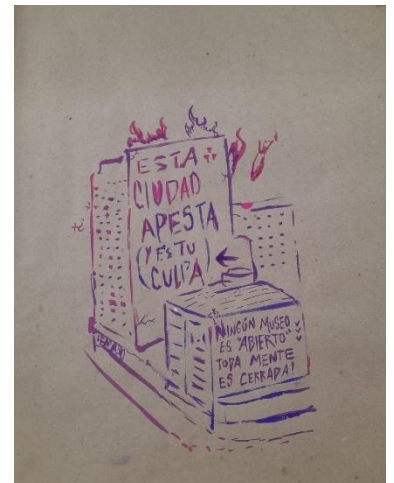 ESTA
CIUDAD
APESTA
(Y ES TU
CULPA)
NINGÚN MUSEO
ES "ABIERTO"
TODA MENTE
ES CERRADA!